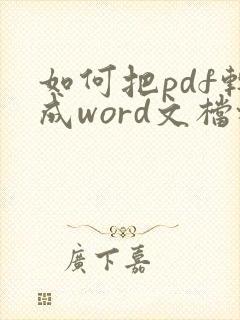 如何把pdf轉
成word文檔
廣下嘉